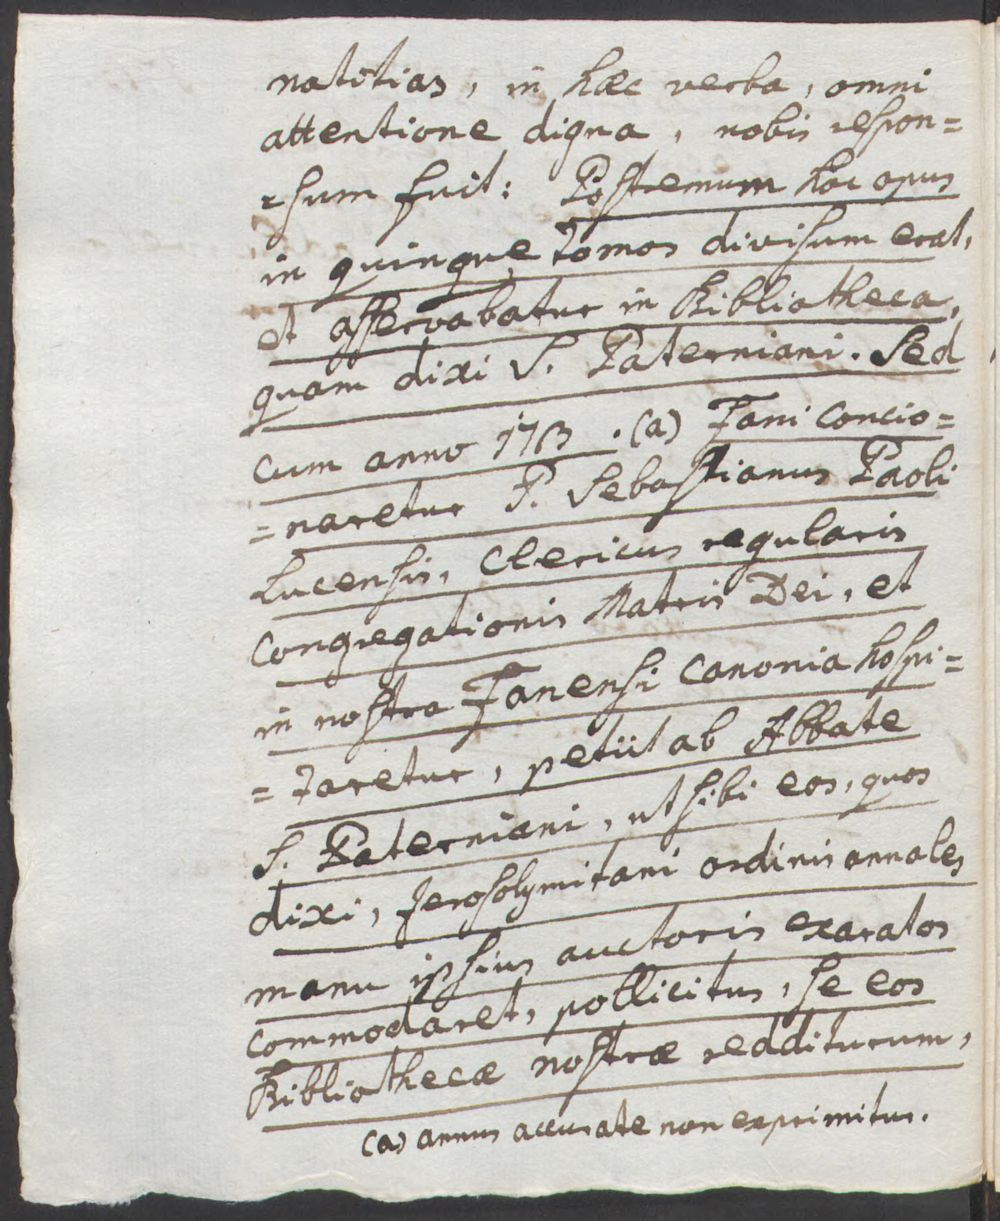 natitias, in hæc verba, omni
attentione digna, nobis respon=
=sum fuit: Postremum hoc opus
in quinque Tomos divisum erat,
et asservabatur in Bibliotheca,
quam dixi S. Paterniani. Sed
cum anno 173 . (a) Fani concio=
=naretur P. Sebastianus Paoli
Lucensis, Clericus regularis
Congregationis Matris Dei, et
in nostra Fanensi Canonia hospi=
=taretur, petiit ab Abbate
S. Paterniani, ut sibi eos, quos
dixi, Jerosolymitani ordinis annales
manu ipsius auctoris exaratos
commodaret, pollicitus, se eos
Bibliothecæ nostræ redditurum,
(a) annus accurate non exprimitur.